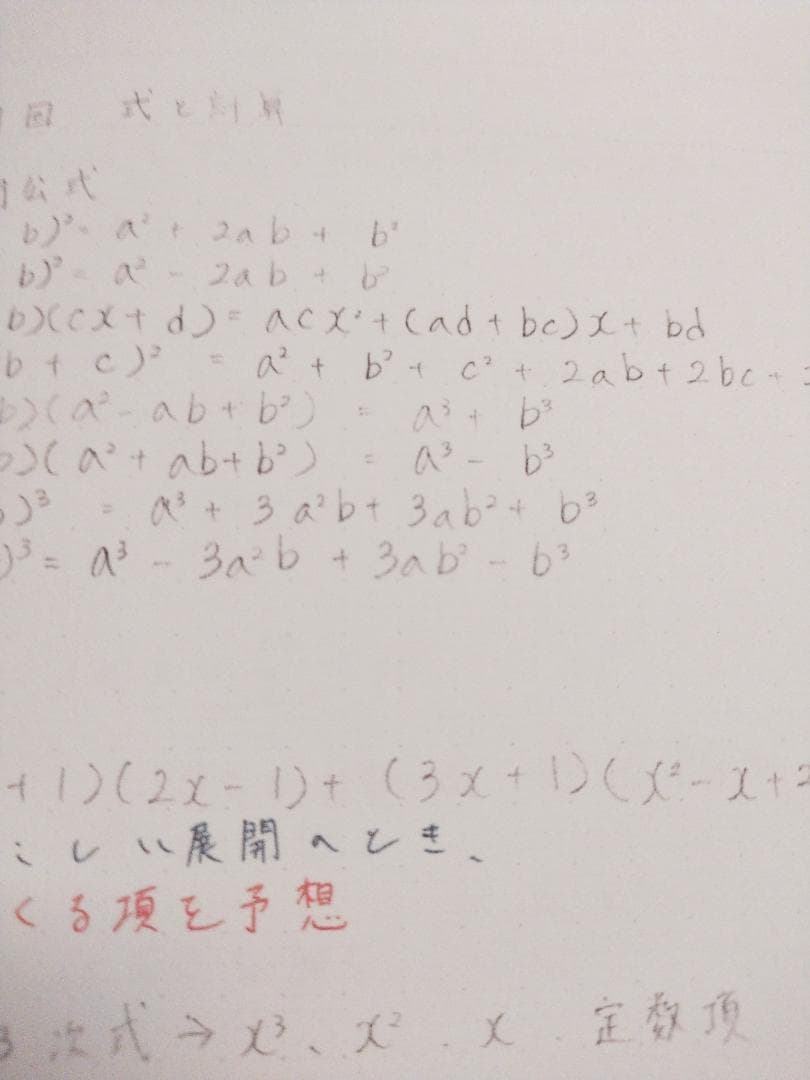 回 式と計算
公式
b)² = a² + 2ab + b²
b)² = a² - 2ab + b²
b)(cx + d) = acx² + (ad + bc)x + bd
b + c)² = a² + b² + c² + 2ab + 2bc +
b)(a² - ab + b²) = a³ + b³
b)(a² + ab + b²) = a³ - b³
b)³ = a³ + 3a²b + 3ab² + b³
)³ = a³ - 3a²b + 3ab² - b³
+ 1)(2x - 1) + (3x + 1)(x² - x + 2
こしい展開のとき、
くる項を予想
3次式 → x³、x²、x、定数項